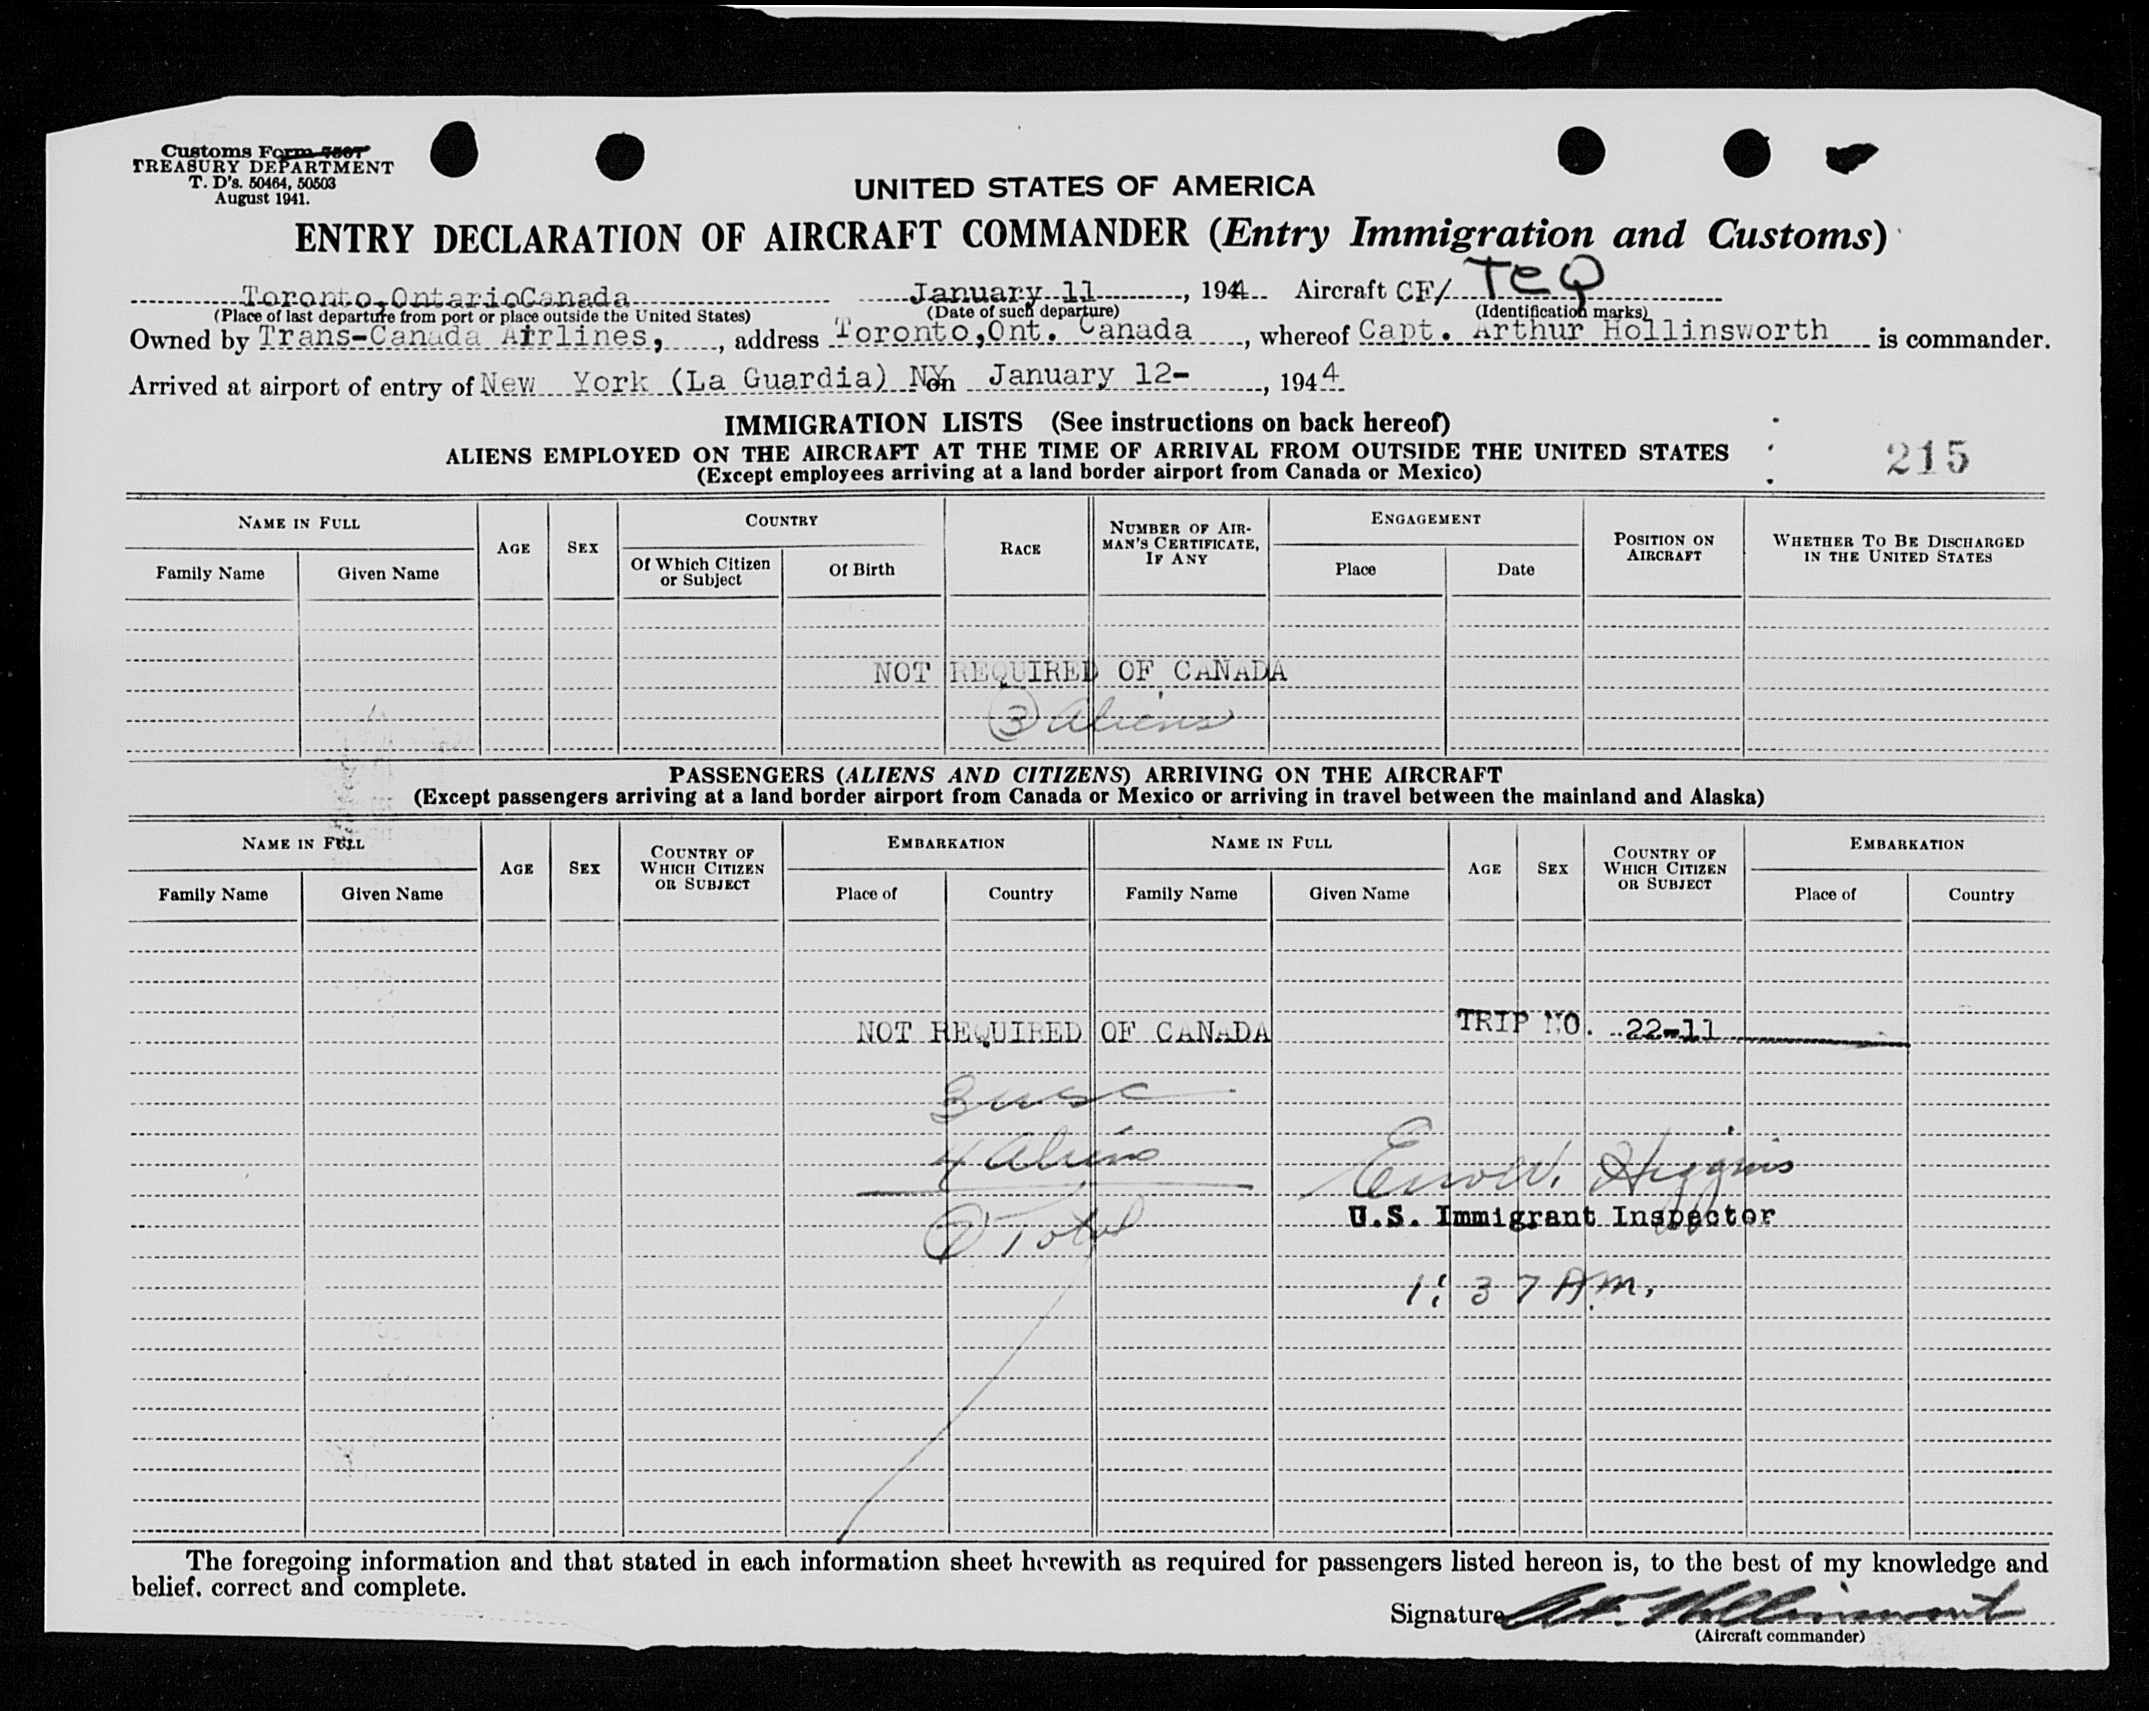 Customs Form 7507
TREASURY DEPARTMENT
T. D's. 50464, 50503
August 1941.
UNITED STATES OF AMERICA
ENTRY DECLARATION OF AIRCRAFT COMMANDER (Entry Immigration and Customs)
Toronto,OntarioCanada January 11, 1944 Aircraft CF/ TCQ
(Place of last departure from port or place outside the United States) (Date of such departure) (Identification marks)
Owned by Trans-Canada Airlines, , address Toronto,Ont. Canada , whereof Capt. Arthur Hollinsworth is commander.
Arrived at airport of entry of New York (La Guardia) NY on January 12- , 1944
IMMIGRATION LISTS (See instructions on back hereof)
ALIENS EMPLOYED ON THE AIRCRAFT AT THE TIME OF ARRIVAL FROM OUTSIDE THE UNITED STATES
(Except employees arriving at a land border airport from Canada or Mexico)
215
NAME IN FULL AGE SEX COUNTRY RACE NUMBER OF AIRMAN'S CERTIFICATE, IF ANY ENGAGEMENT POSITION ON AIRCRAFT WHETHER TO BE DISCHARGED IN THE UNITED STATES
Family Name Given Name Of Which Citizen or Subject Of Birth Place Date
NOT REQUIRED OF CANADA
3 Aliens
PASSENGERS (ALIENS AND CITIZENS) ARRIVING ON THE AIRCRAFT
(Except passengers arriving at a land border airport from Canada or Mexico or arriving in travel between the mainland and Alaska)
NAME IN FULL AGE SEX COUNTRY OF WHICH CITIZEN OR SUBJECT EMBARKATION NAME IN FULL AGE SEX COUNTRY OF WHICH CITIZEN OR SUBJECT EMBARKATION
Family Name Given Name Place of Country Family Name Given Name Place of Country
NOT REQUIRED OF CANADA TRIP NO. 22-11
3 USC
4 Aliens
Higgins
7 Total
U.S. Immigrant Inspector
1:37 AM.
The foregoing information and that stated in each information sheet herewith as required for passengers listed hereon is, to the best of my knowledge and
belief, correct and complete.
Signature
(Aircraft commander)